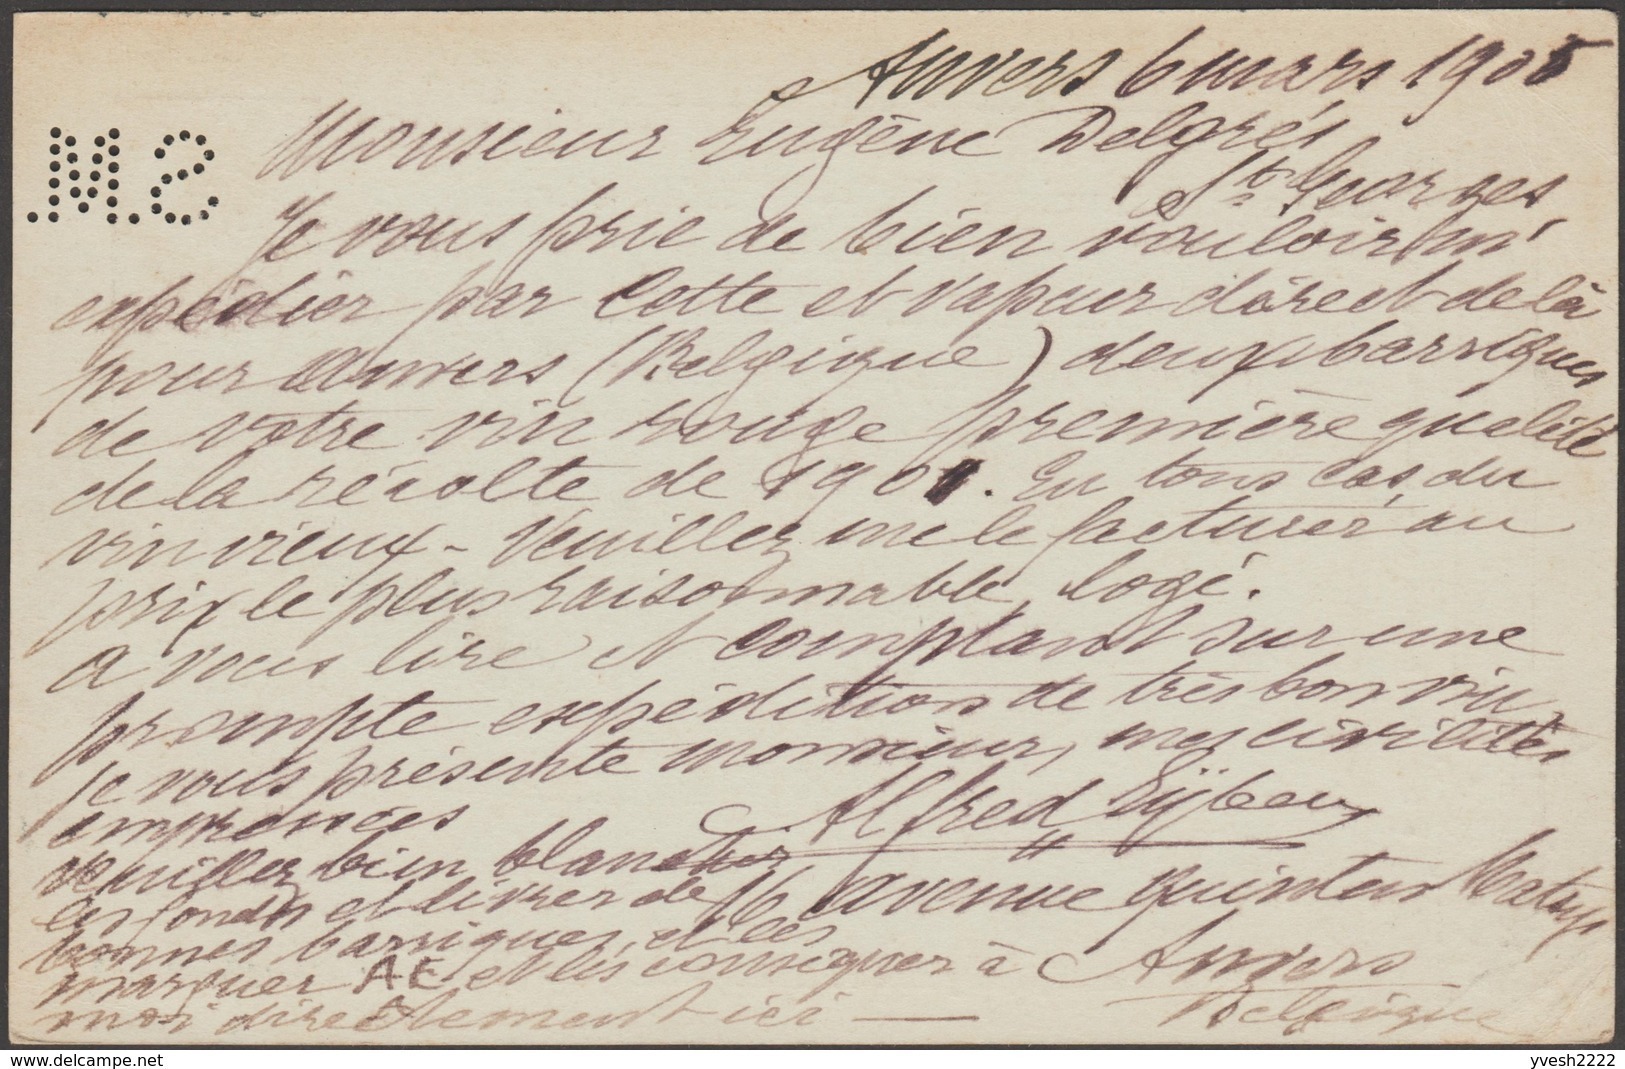 Anvers 6 mars 1905
Monsieur Eugène Delgrés
St Georges
Je vous prie de bien vouloir m'
expédier par Cette et vapeur direct de là
pour Anvers (Belgique) deux barriques
de votre vin rouge première qualité
de la récolte de 1901. En tous cas, du
vin vieux - Veuillez me le facturer au
prix le plus raisonnable, logé.
A vous lire et comptant sur une
prompte expédition de très bon vin,
je vous présente monsieur, mes civilités
empressées
Alfred
veuillez bien
les fonds et livrer de
16 avenue Quinten Matsys
bonnes barriques, et les
marquer AE et les consigner à
Anvers
moi directement ici —
Belgique
.M.S.
yvesh2222
delcampe.net